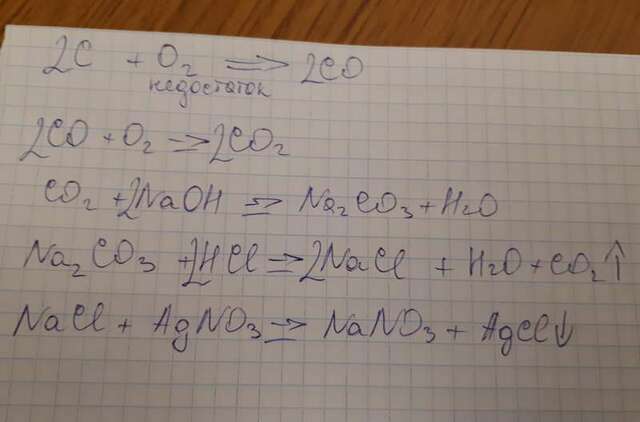 2C + O₂ => 2CO
недостаток
2CO + O₂ => 2CO₂
CO₂ + 2NaOH => Na₂CO₃ + H₂O
Na₂CO₃ + 2HCl => 2NaCl + H₂O + CO₂↑
NaCl + AgNO₃ => NaNO₃ + AgCl↓